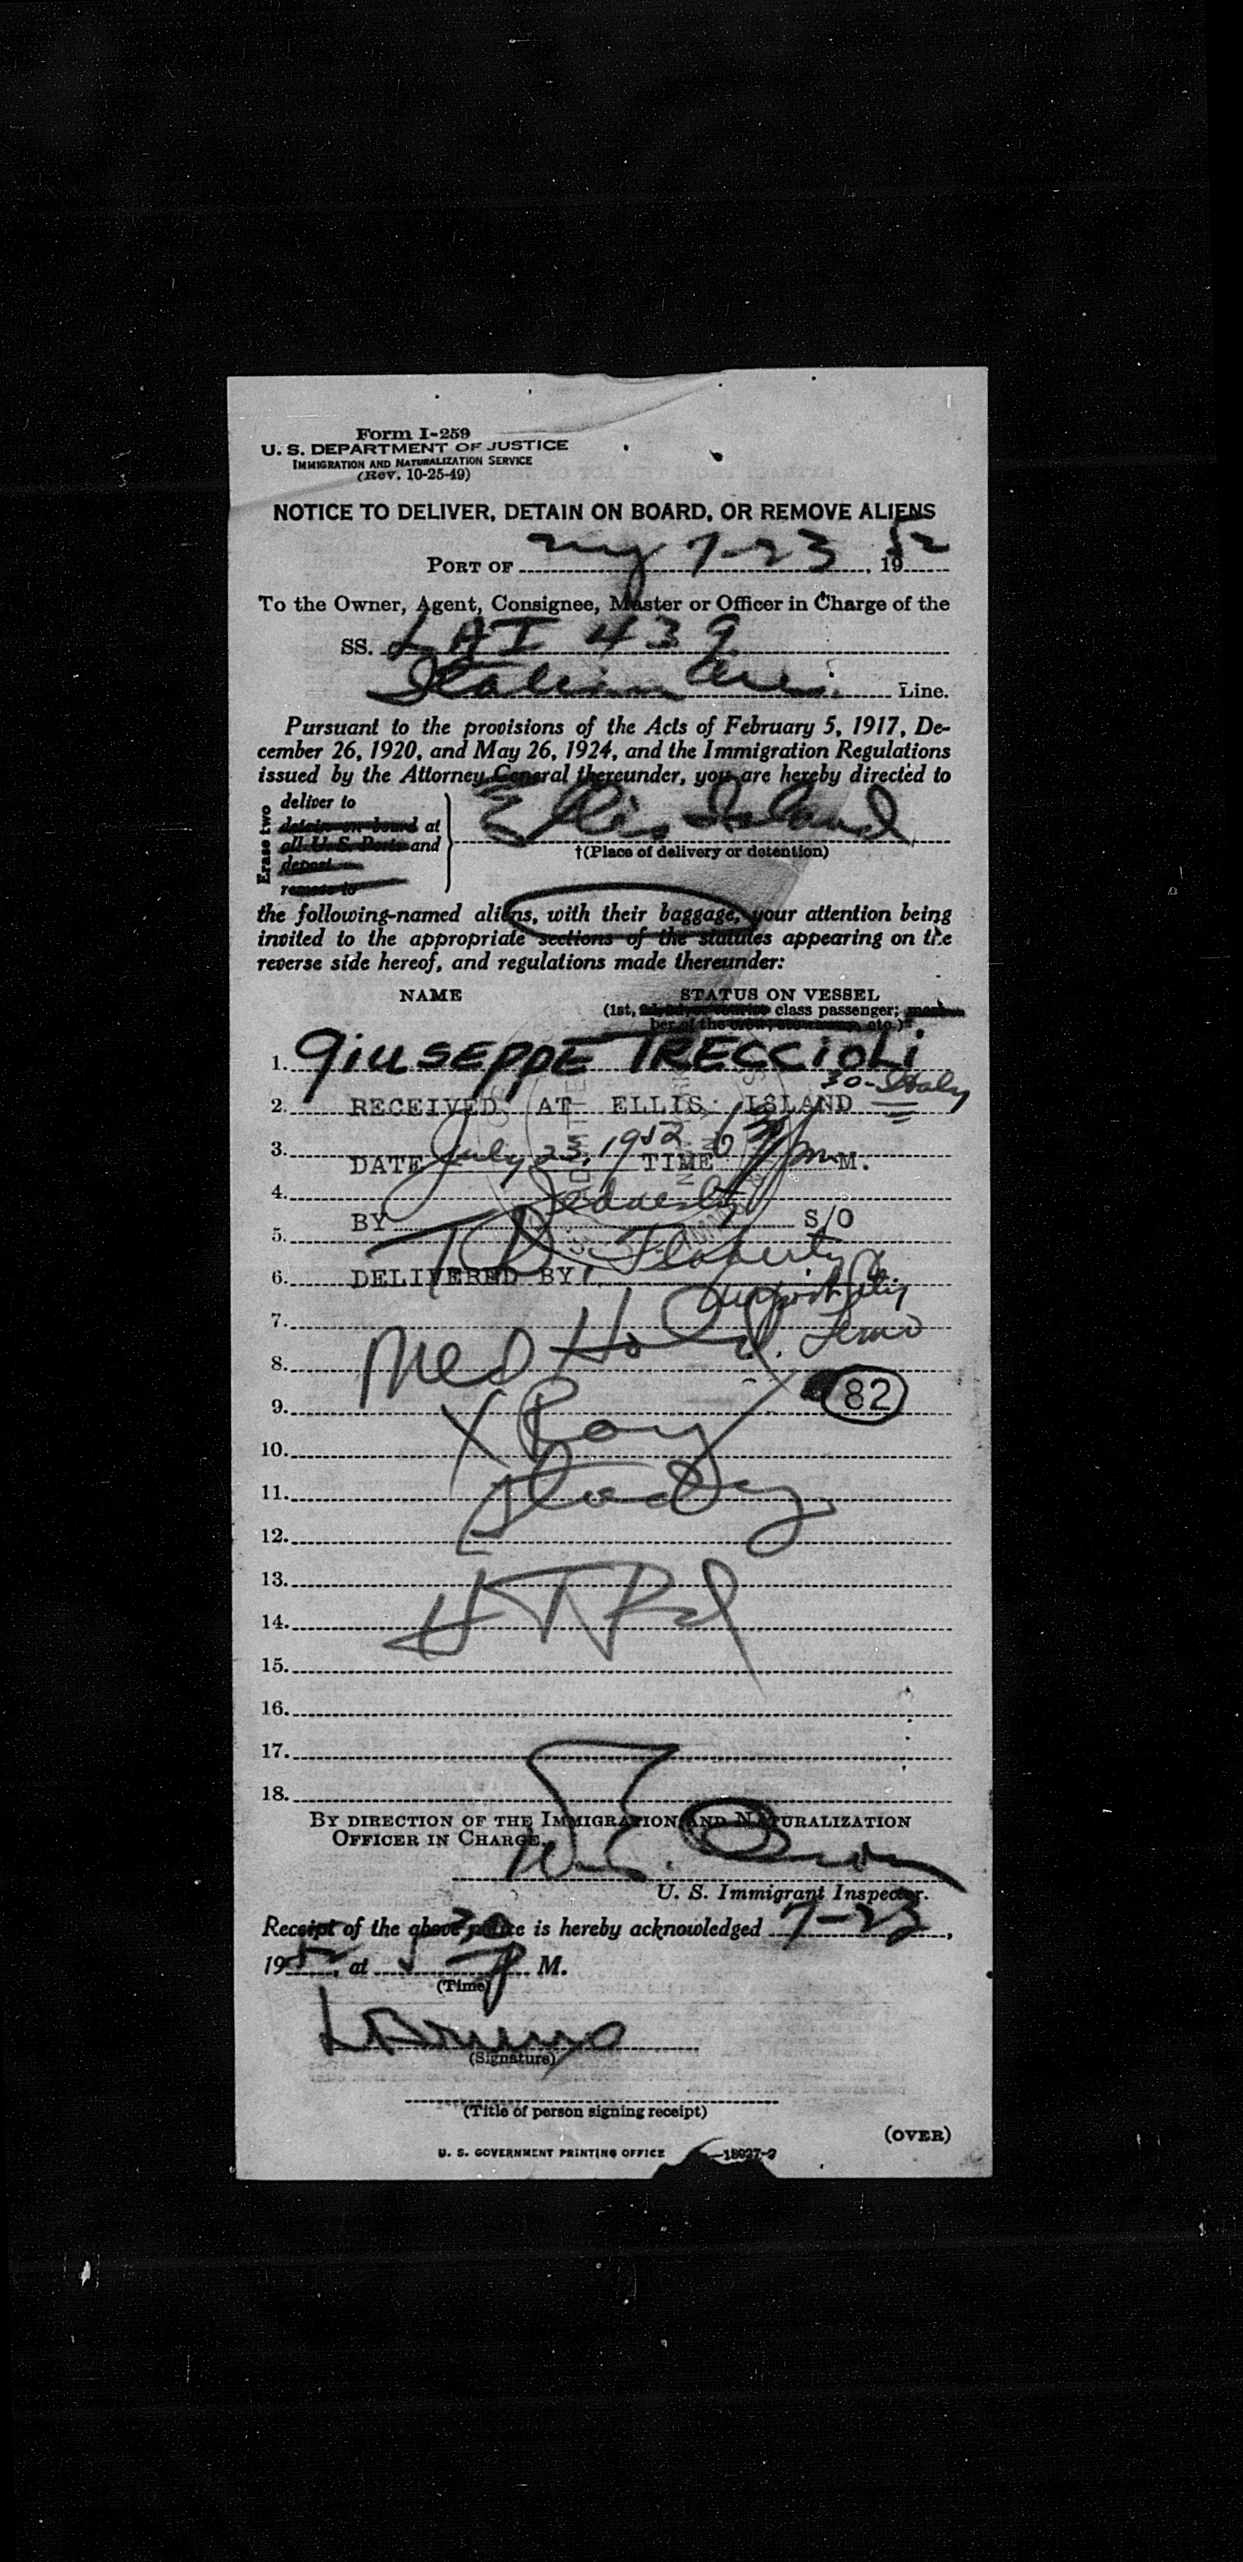 Form I-259
U. S. DEPARTMENT OF JUSTICE
IMMIGRATION AND NATURALIZATION SERVICE
(Rev. 10-25-49)
NOTICE TO DELIVER, DETAIN ON BOARD, OR REMOVE ALIENS
PORT OF NY 7-23, 1952
To the Owner, Agent, Consignee, Master or Officer in Charge of the
SS. LAI 439
Italian Line.
Pursuant to the provisions of the Acts of February 5, 1917, De-
cember 26, 1920, and May 26, 1924, and the Immigration Regulations
issued by the Attorney General thereunder, you are hereby directed to
Erase two
deliver to
detain on board at
all U. S. Ports and
deport
remove to
Ellis Island
†(Place of delivery or detention)
the following-named aliens, with their baggage, your attention being
invited to the appropriate sections of the statutes appearing on the
reverse side hereof, and regulations made thereunder:
NAME STATUS ON VESSEL
(1st, class passenger; mem-
ber of the crew, stowaway, etc.)*
1. GIUSEPPE TRECCIOLI
30-Italy
2. RECEIVED AT ELLIS ISLAND
3. DATE July 23, 1952 TIME 6 30 PM M.
4.
BY S/O
5. T Flaherty
6. DELIVERED BY
7.
Med Hold
8.
82
9. X Ray
10.
11. Study
12.
13.
14.
15.
16.
17.
18.
BY DIRECTION OF THE IMMIGRATION AND NATURALIZATION
OFFICER IN CHARGE.
U. S. Immigrant Inspector.
Receipt of the above notice is hereby acknowledged 7-23,
1952, at 5 30 P M.
(Time)
L Bruno
(Signature)
(Title of person signing receipt)
(OVER)
U. S. GOVERNMENT PRINTING OFFICE —18027-2